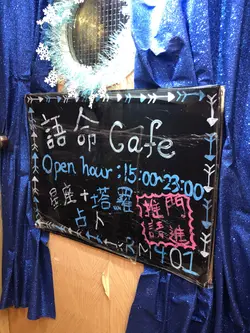 語命 Cafe
Open hour : 15:00~23:00
星座 + 塔羅
占卜
推門
請進
RM401